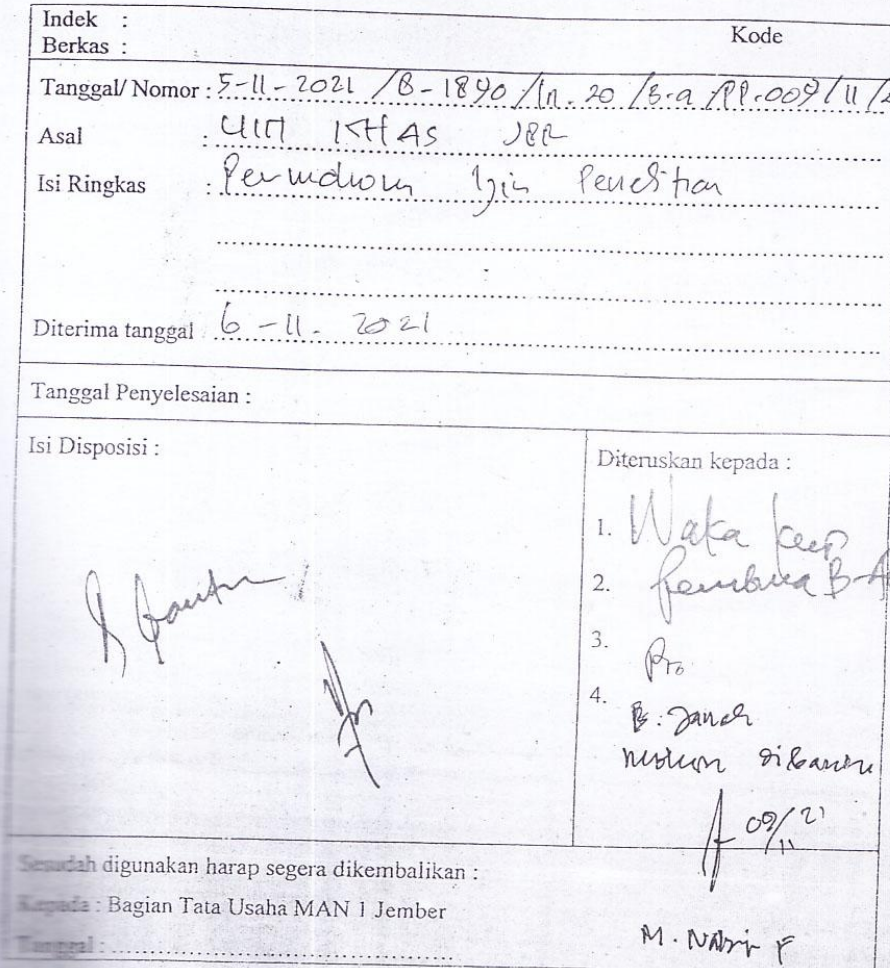 Indek :
Berkas :
Kode
Tanggal/ Nomor : 5-11-2021 / B-1890 / In.20 / 3.a / PP.009 / 11 /
Asal : UIN KHAS JBR
Isi Ringkas : Permohonan Izin Penelitian
Diterima tanggal 6-11-2021
Tanggal Penyelesaian :
Isi Disposisi :
Diteruskan kepada :
1. Waka
2. Pembina B-A
3.
Pro
4.
B. Janah
mohon dibantu
09/11 21
Sesudah digunakan harap segera dikembalikan :
Kepada : Bagian Tata Usaha MAN 1 Jember
Tanggal : ..........................................
M. Nasir F